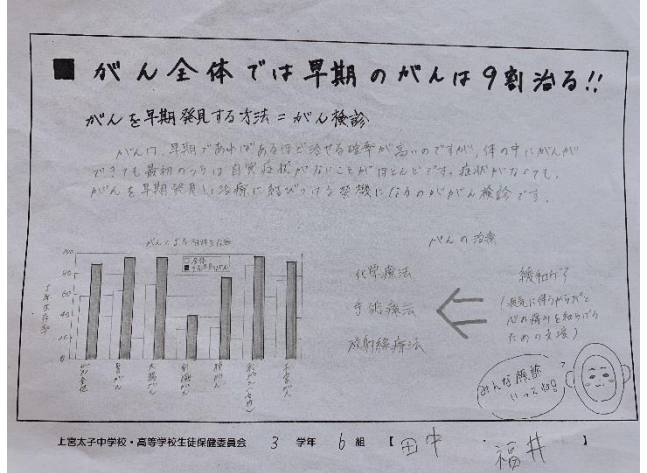 ■ がん全体では早期のがんは9割治る!!
がんを早期発見する方法=がん検診
がんは、早期であればあるほど治せる確率が高いのですが、体の中にがんが
できても最初のうちは自覚症状がないことがほとんどです。症状がなくても、
がんを早期発見し治療に結びつける契機になるのががん検診です。
5年生存率
100
80
60
40
20
0
全体
がん全体
胃がん
大腸がん
肺がん
子宮がん
がんの治療
化学療法
手術療法
放射線療法
緩和ケア
(病気に伴うからだと
心の痛みを和らげる
ための支援)
みんな検診
いってね!
上宮太子中学校・高等学校生徒保健委員会 3 学年 6 組 【田中 福井 】